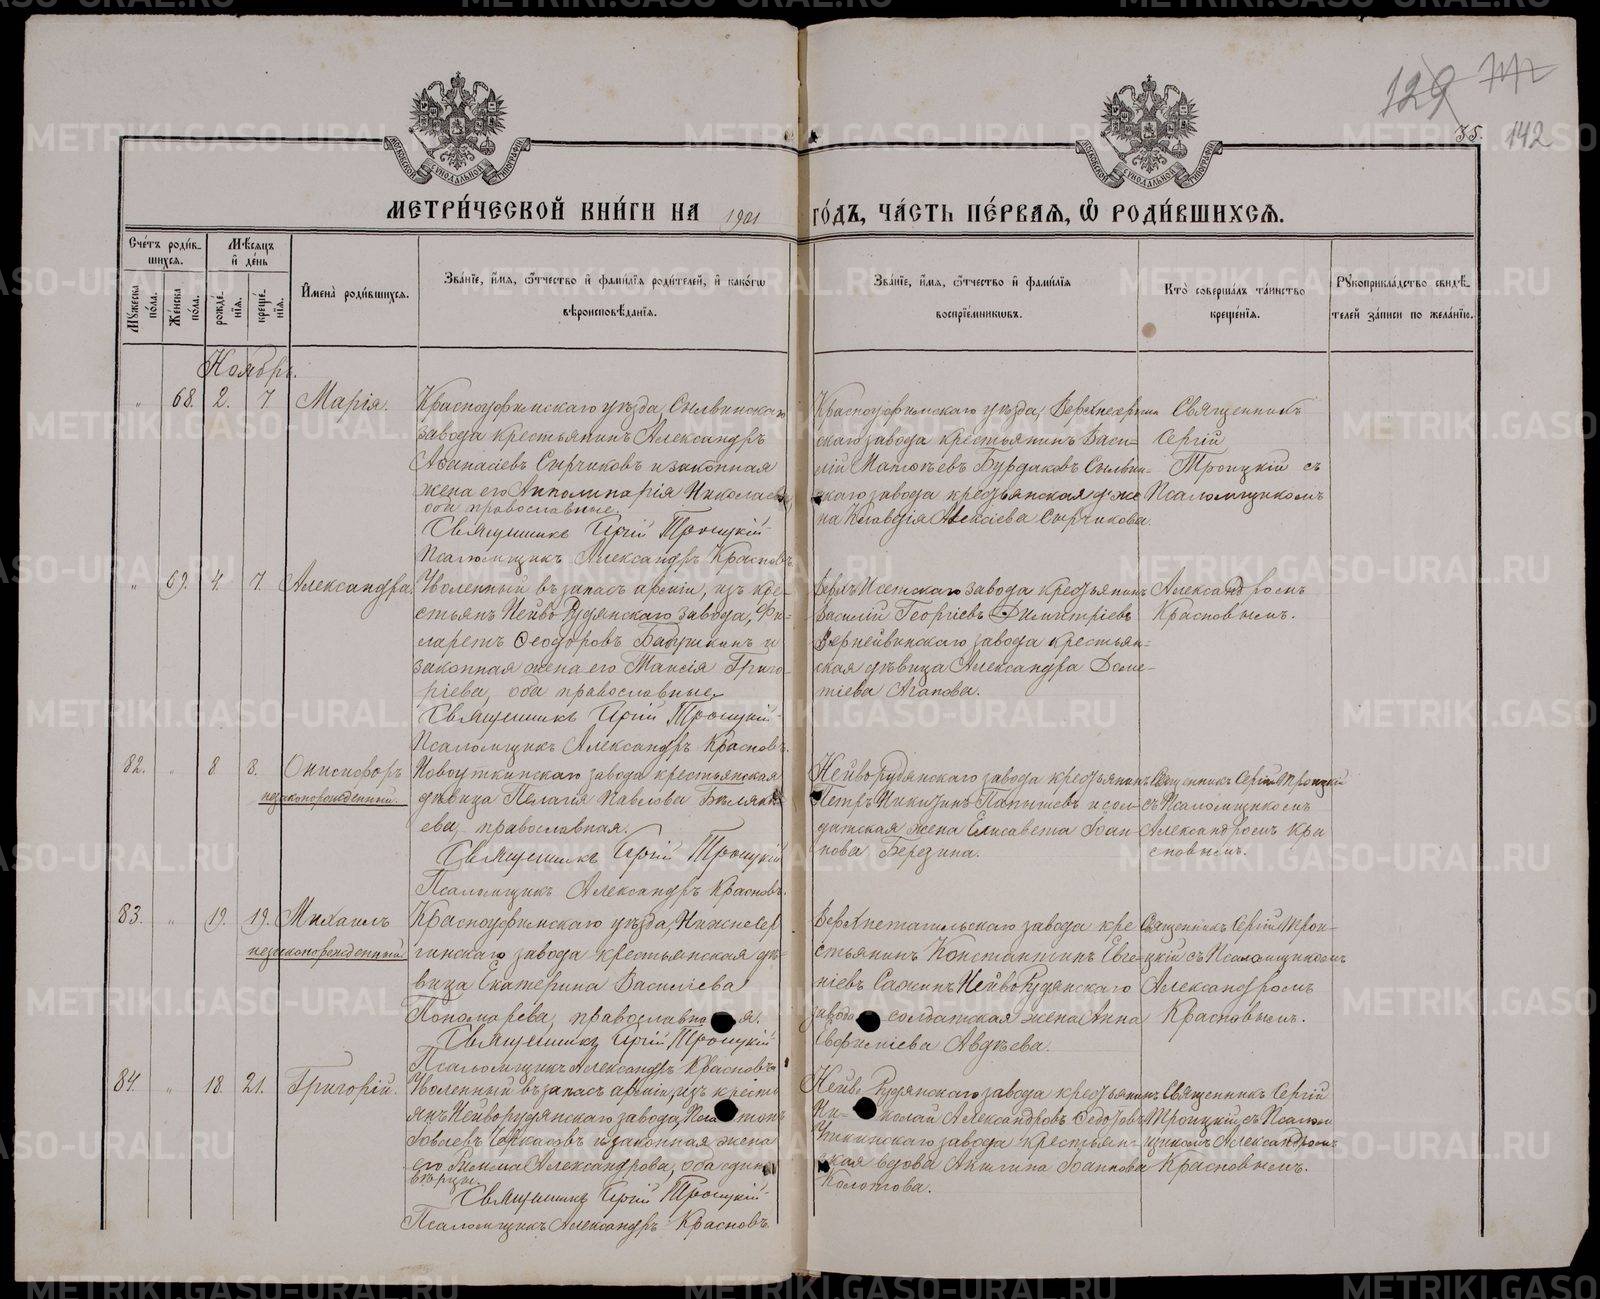 129 142
35. 142
МЕТРИ́ЧЕСКОЙ КНИ́ГИ НА 1901 ГО́ДЪ, ЧА́СТЬ ПЕ́РВАЯ, Ѡ҆ РОДИ́ВШИХСѦ.
Сче́тъ роди́в-
шихся.
Мѣ́сяцъ
и҆ де́нь
Мꙋ́жеска по́ла.
Же́нска по́ла.
рожде́-нїя.
креще́-нїя.
И҆мена̀ роди́вшихся.
Зва́нїе, и҆́мя, ѻ҆́тчество и҆ фами́лїя роди́телей, и҆ како́гѡ
вѣроисповѣ́данїя.
Зва́нїе, и҆́мя, ѻ҆́тчество и҆ фами́лїя
воспрїе́мникѡвъ.
Кто̀ соверша́лъ та́инство
креще́нїя.
Рꙋкоприкла́дство свидѣ́-
телей за́писи по жела́нїю.
Ноябрь.
„ 68. 2. 7. Марія.
Красноуфимскаго уѣзда, Сылвинскаго
завода крестьянинъ Александръ
Аѳанасіевъ Сырчиковъ и законная
жена его Апполинарія Николаева
оба православные.
Священникъ Сергій Троицкій
Псаломщикъ Александръ Красновъ.
Красноуфимскаго уѣзда, Верхнесергин
скаго завода крестьянинъ Васи-
лій Бурдаковъ Сылвин-
скаго завода крестьянская же
на Клавдія Алексіева Сырчикова.
Священникъ
Сергій
Троицкій съ
Псаломщикомъ
„ 69. 4. 7. Александра.
Уволенный въ запасъ арміи, изъ кре-
стьянъ Нейво Рудянскаго завода, Фи-
ларетъ Ѳеодоровъ Бабушкинъ и
законная жена его Таисія Григо-
ріева, оба православные
Священникъ Сергій Троицкій
Псаломщикъ Александръ Красновъ.
Верхъ Исетскаго завода крестьянинъ
Василій Георгіевъ Димитріевъ
Верхнейвинскаго завода крестьян-
ская дѣвица Александра Доме-
тіева Агапова.
Александромъ
Красновымъ.
82. „ 8 8. Онисифоръ
незаконорожденный.
Новоуткинскаго завода крестьянская
дѣвица Пелагія Павлова Беляк-
ева, православная.
Священникъ Сергій Троицкій
Псаломщикъ Александръ Красновъ.
Нейво Рудянскаго завода крестьянинъ
Петръ Никитинъ и сол-
датская жена Елисавета Іоан-
нова Березина.
Священникъ Сергій Троицкій
съ Псаломщикомъ
Александромъ Кра
сновымъ.
83. „ 19. 19. Михаилъ
незаконорожденный
Красноуфимскаго уѣзда, Нижнесер
гинскаго завода крестьянская дѣ-
вица Екатерина Василіева
Пономарева, православная.
Священникъ Сергій Троицкій
Псаломщикъ Александръ Красновъ
Верхнетагильскаго завода кре
стьянинъ Константинъ Евге-
ніевъ Сажинъ Нейво Рудянскаго
завода солдатская жена Анна
Евфиміева Авдѣева.
Священникъ Сергій Трои-
цкій съ Псаломщикомъ
Александромъ
Красновымъ.
84. „ 18. 21. Григорій.
Уволенный въ запасъ арміи, изъ кресть
янъ Нейворудянскаго завода, Платонъ
Іовлевъ Черкасовъ и законная жена
его Римма Александрова, оба едино
вѣрцы.
Священникъ Сергій Троицкій
Псаломщикъ Александръ Красновъ
Нейво Рудянскаго завода крестьянинъ
Ни-колай Александровъ Ѳедоровъ
Уткинскаго завода крестьян-
ская вдова Акилина Іоаннова
Колотова.
Священникъ Сергій
Троицкій съ Псалом
щикомъ Александромъ
Красновымъ.
METRIKI.GASO-URAL.RU